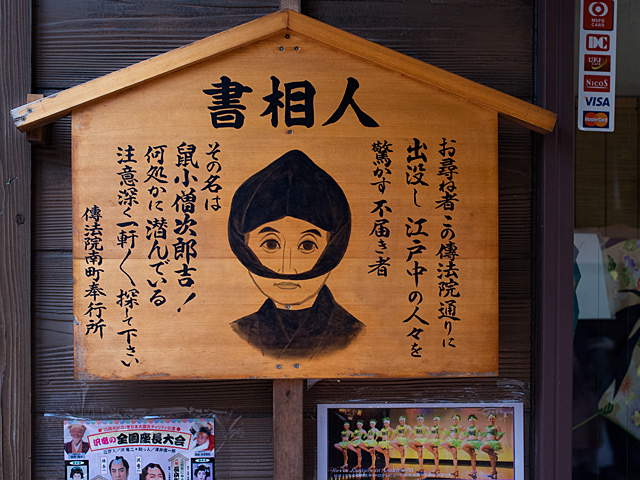 人相書
お尋ね者 この傳法院通りに
出没し 江戸中の人々を
驚かす 不届き者
その名は
鼠小僧次郎吉!
何処かに潜んでいる
注意深く一軒〱探して下さい
傳法院南町奉行所
MUFG
CARD
DC
UFJ Card
NICOS
VISA
MasterCard
全国座長大会